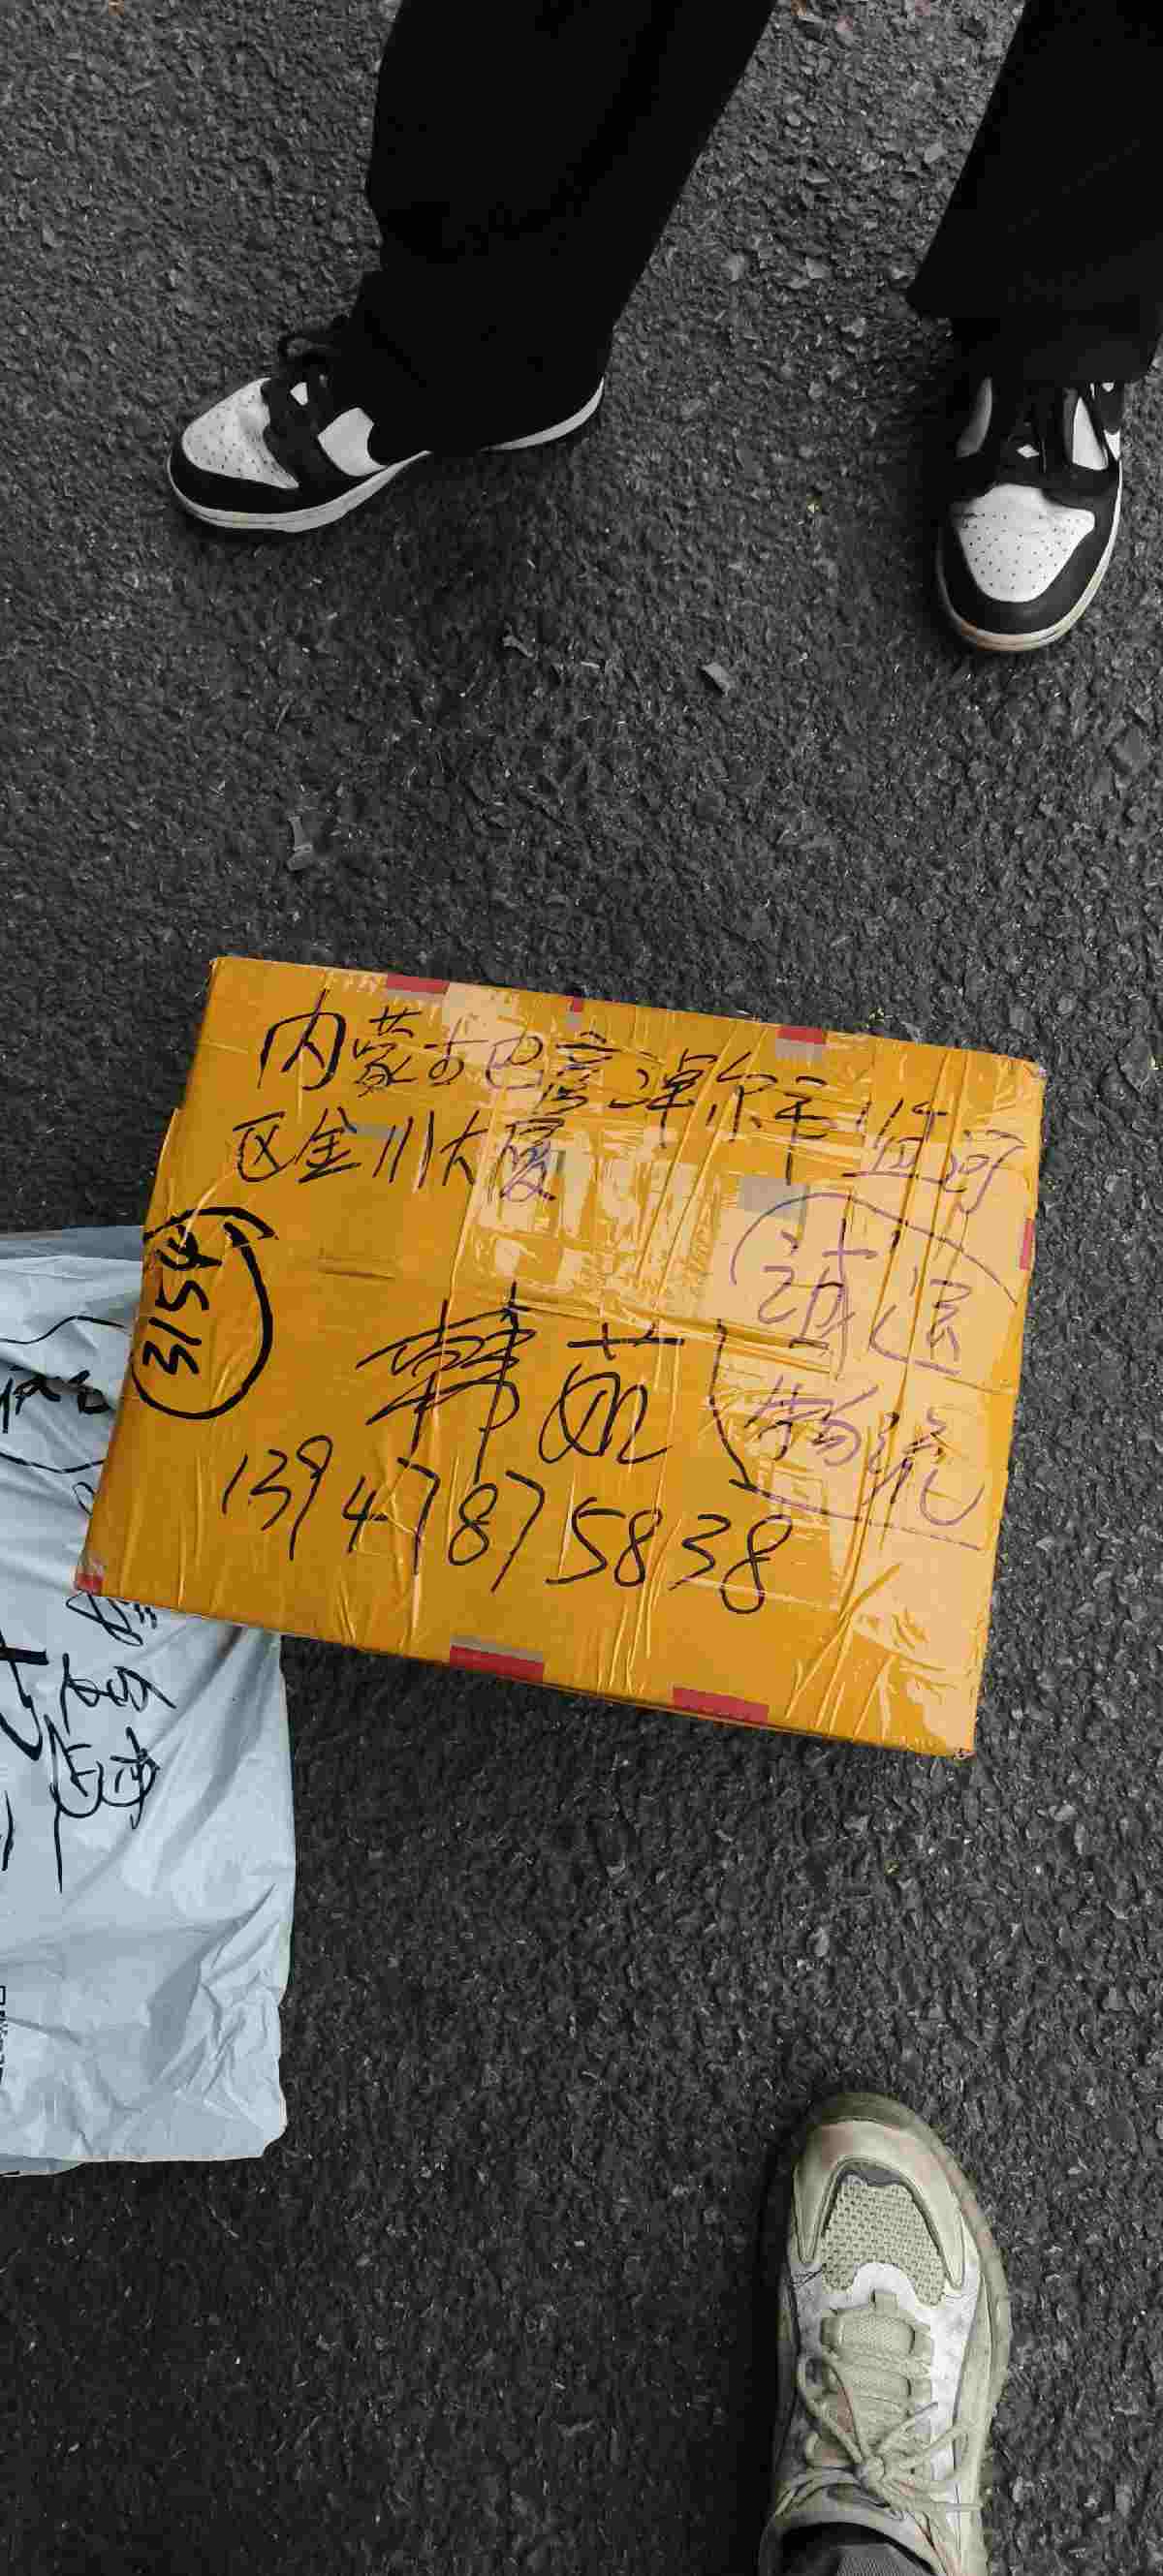 内蒙古巴彦淖尔市临河
区金川大厦
3154
诚运
物流
韩茹
13947875838